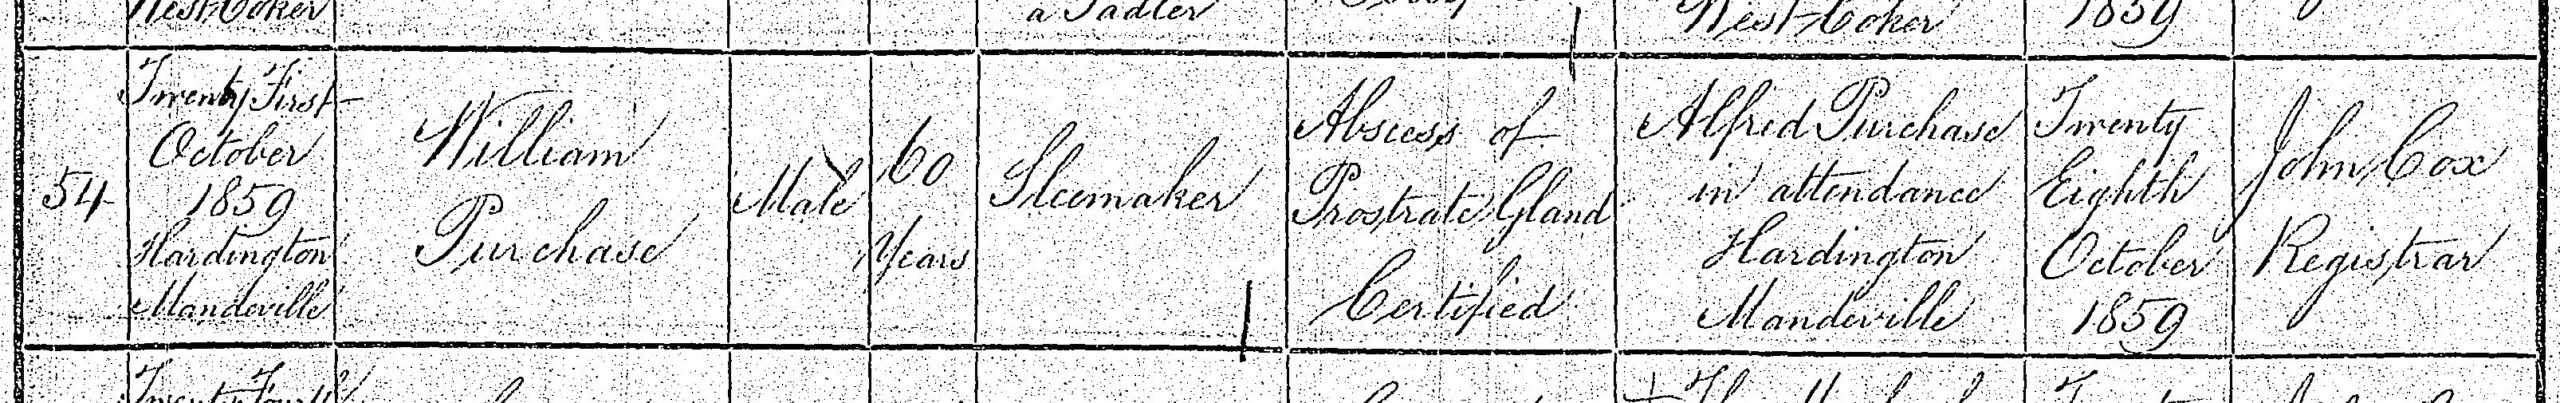 West Coker
a Sadler
West Coker
1859
54
Twenty First
October
1859
Hardington
Mandeville
William
Purchase
Male
60
Years
Shoemaker
Abscess of
Prostrate Gland
Certified
Alfred Purchase
in attendance
Hardington
Mandeville
Twenty
Eighth
October
1859
John Cox
Registrar
Twenty Fourth